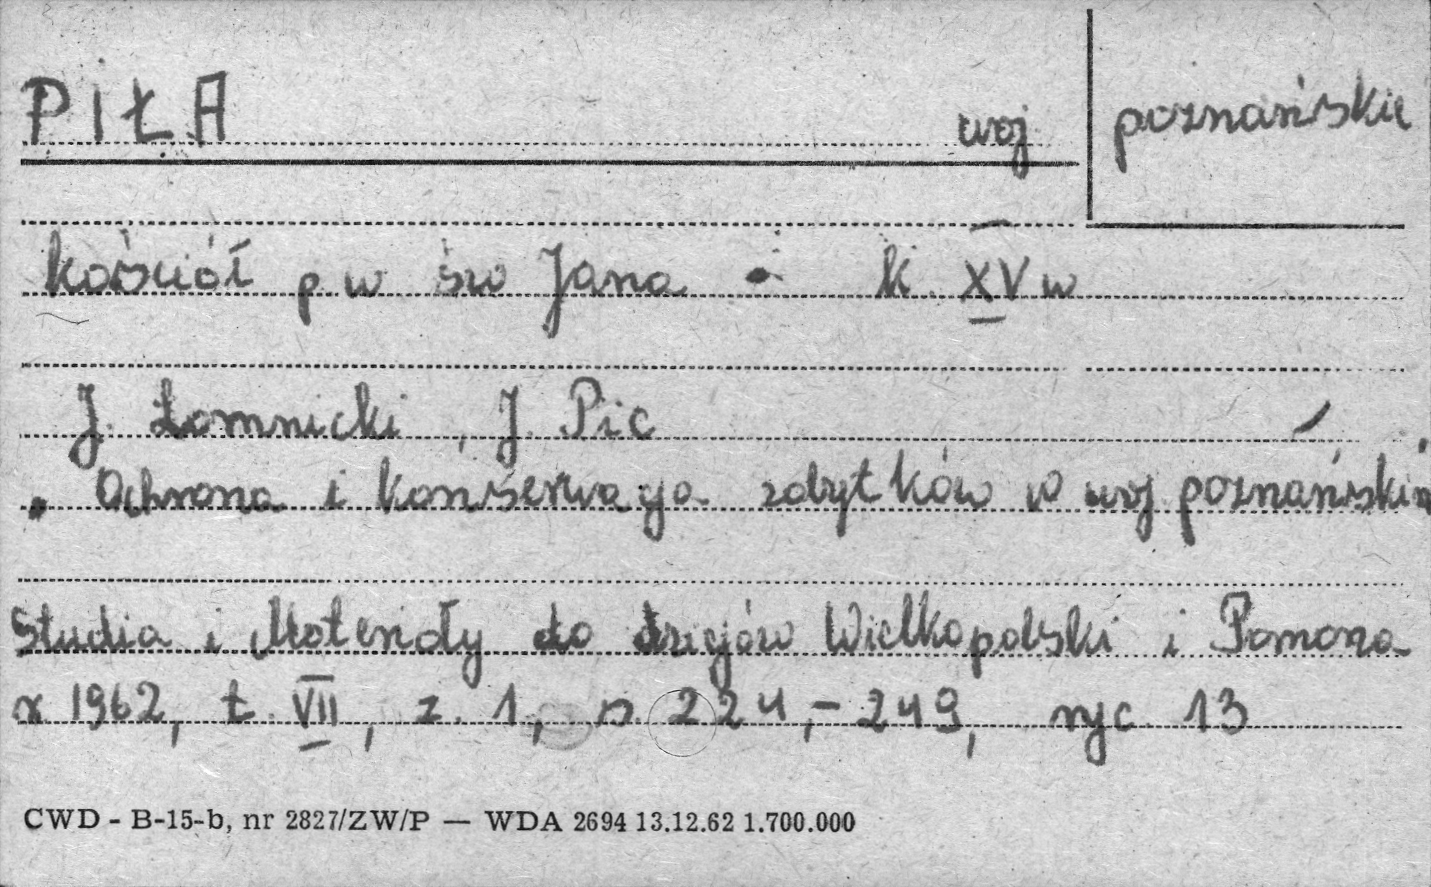 PIŁA woj poznańskie
kościół p w św Jana - k. XV w
J. Łomnicki, J. Pic
„Ochrona i konserwacja zabytków w woj poznańskim"
Studia i Materiały do dziejów Wielkopolski i Pomorza
r 1962, t. VII, z. 1, s. 224,-249, ryc 13
CWD - B-15-b, nr 2827/ZW/P — WDA 2694 13.12.62 1.700.000